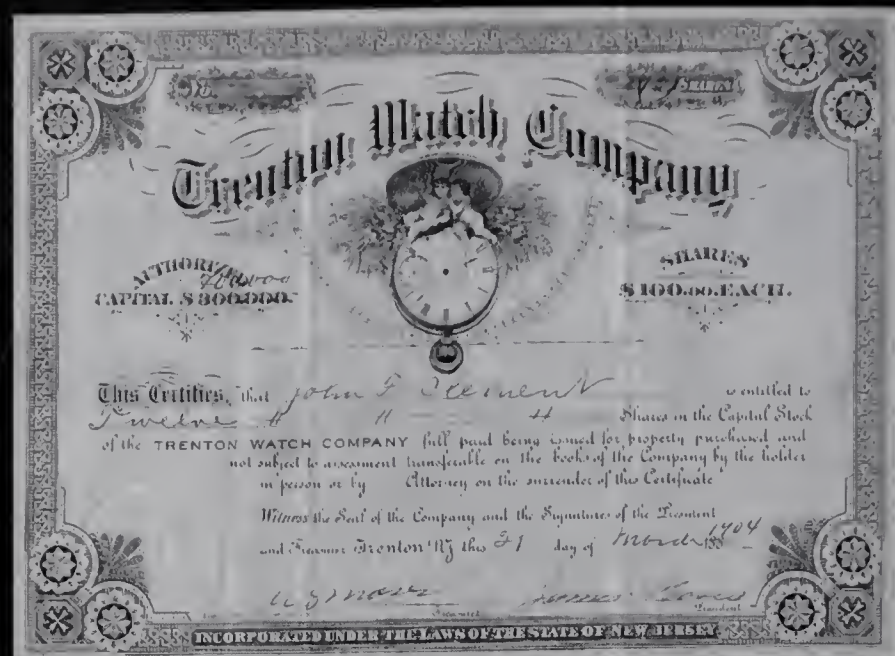 No. SHARES
Trenton Watch Company
AUTHORIZED
CAPITAL $300,000.
SHARES
$100.00. EACH.
This Certifies, that John F is entitled to
Twelve " " " Shares in the Capital Stock
of the TRENTON WATCH COMPANY full paid being issued for property purchased and
not subject to assessment transferable on the books of the Company by the holder
in person or by Attorney on the surrender of this Certificate
Witness the Seal of the Company and the Signatures of the President
and Treasurer Trenton NJ this 21 day of March 1904
Treasurer President
INCORPORATED UNDER THE LAWS OF THE STATE OF NEW JERSEY